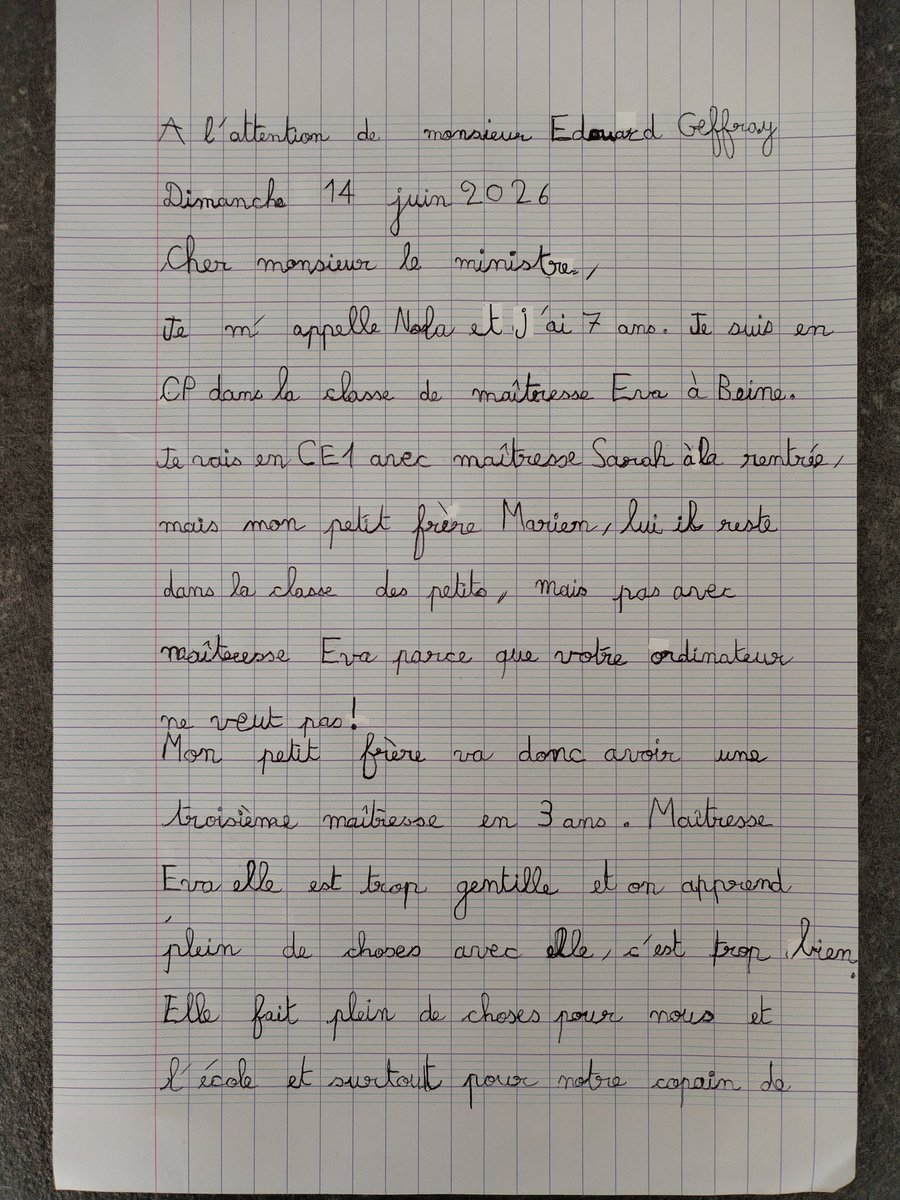 A l'attention de monsieur Edouard Geffray
Dimanche 14 juin 2026
Cher monsieur le ministre,
Je m'appelle Nola et j'ai 7 ans. Je suis en
CP dans la classe de maîtresse Eva à Beine.
Je vais en CE1 avec maîtresse Sarah à la rentrée,
mais mon petit frère Marien, lui il reste
dans la classe des petits, mais pas avec
maîtresse Eva parce que votre ordinateur
ne veut pas!
Mon petit frère va donc avoir une
troisième maîtresse en 3 ans. Maîtresse
Eva elle est trop gentille et on apprend
plein de choses avec elle, c'est trop bien.
Elle fait plein de choses pour nous et
l'école et surtout pour notre copain de